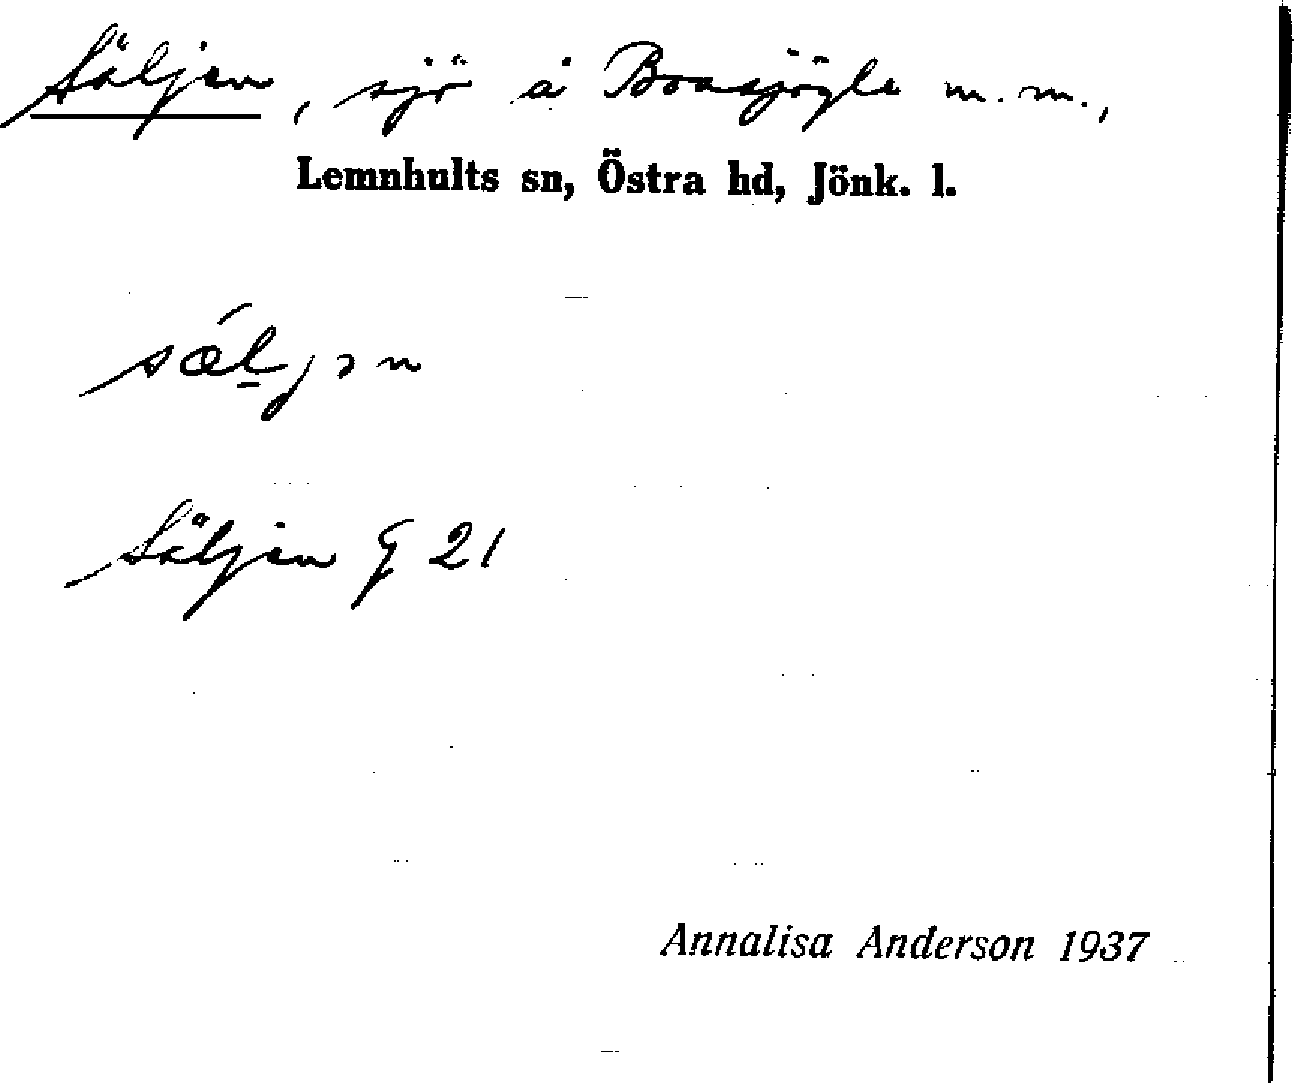 Säljen, sjö å Boasjögle m.m.,
Lemnhults sn, Östra hd, Jönk. l.
sǽl̠jən
Säljen G 21
Annalisa Anderson 1937